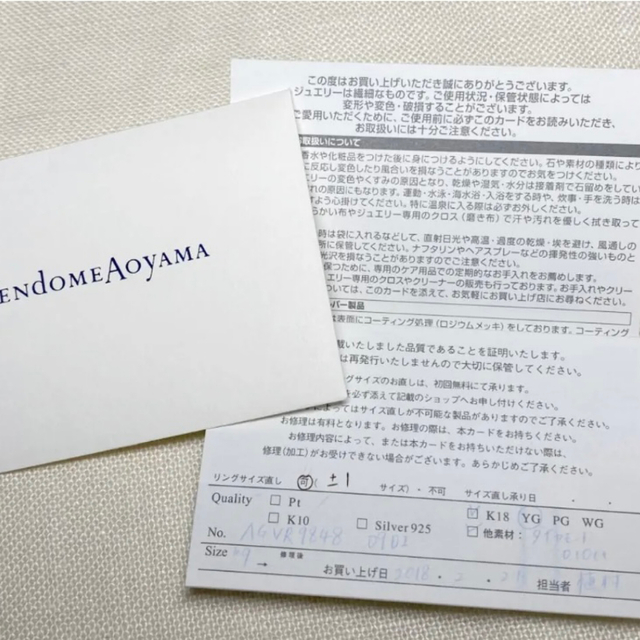 ENDOMEAOYAMA
この度はお買い上げいただき誠にありがとうございます。
ジュエリーは繊細なものです。ご使用状況・保管状態によっては
変形や変色・破損することがございます。
ご愛用いただくために、ご使用前に必ずこのカードをお読みいただき、
お取扱いには十分ご注意ください。
取扱いについて
香水や化粧品をつけた後に身につけるようにしてください。石や素材の種類により
に反応し変色したり風合いを損なうことがありますのでお気をつけください。
エリーの変色やくすみの原因となり、乾燥や湿気・水分は接着剤で石留めをしてい
れの原因にもなります。運動・水泳・海水浴・入浴をする時や、炊事・手を洗う時は
すよう心掛けてください。特に温泉に入る際は必ずお外しください。
らかい布やジュエリー専用のクロス(磨き布)で汗や汚れを優しく拭き取って
時は袋に入れるなどして、直射日光や高温・過度の乾燥・埃を避け、風通しの
所に保管してください。ナフタリンやヘアスプレーなどの揮発性の強いものと
光沢を損なうことがありますのでご注意ください。
保つために、専用のケア用品での定期的なお手入れをお薦めします。
エリー専用のクロスやクリーナーの販売も行っております。お手入れやクリー
については、このカードを添えて、お気軽にお買い上げ店にお尋ねください。
バー製品
は表面にコーティング処理(ロジウムメッキ)をしております。コーティング
載いたしました品質であることを証明いたします。
は再発行いたしませんので大切に保管してください。
ングサイズのお直しは、初回無料にて承ります。
を必ず添えて記載のショップへお申し付けください。
によってはサイズ直しが不可能な製品がありますのでご了承ください。
お修理は有料となります。お修理の際は、本カードをお持ちください。
お修理内容によって、または本カードをお持ちいただけない際は、
修理(加工)がお受けできない場合がございます。あらかじめご了承ください。
リングサイズ直し 可( ±1 サイズ)・不可 サイズ直し承り日 . .
Quality □ Pt □ K18 YG PG WG
□ K10 □ Silver 925 □ 他素材:
No. AGVR9848
Size #9 → 修理後
お買い上げ日 2018 . 2 . 担当者